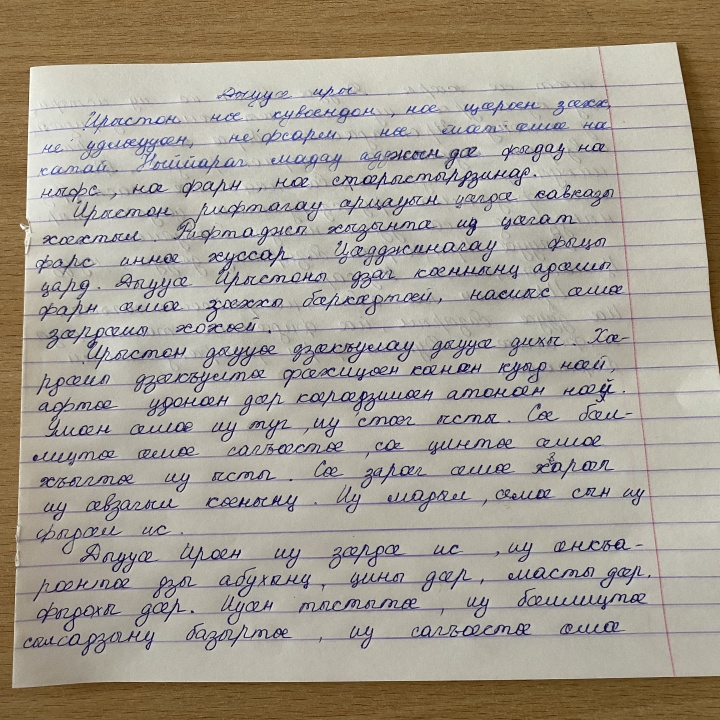 Дыууæ иры.
Ирыстон нæ кувæндон, нæ цæрæн зæхх,
не удлæууæн, не'фсарм нæ мæт æмæ нæ
катай. Ныййарæг мадау адджын дæ фыдау нæ
ныфс, нæ фарн, нæ стырыстырдзинад.
Ирыстон рифтагау æрцауын цæгдæ кавказы
хæхтыл. Рифтаджы хызынтæ иу цæгат
фарс иннæ хуссар. Цадджинагау фыцы
цард. Дыууæ Ирыстоны дзаг кæнынц адæмы
фарн æмæ зæххы бæркадтæй, насып æмæ
зæрдæмы хохæй.
Ирыстон дыууæ дзæкъулау дыууæ дихы. Хæ-
рдмæ дзæкъултæ фæхицæн кæнæн куыд нæй,
афтæ удонæн дæр кæрæдзимæн атонæн нæй.
Умæн æмæ иу туг, иу стæг ысты. Сæ бæл-
лицтæ æмæ сагъæстæ, сæ цинтæ æмæ
хъыгтæ иу ысты. Сæ зарæг æмæ зарæг
иу æвзагыл кæнынц. Иу мадыл, æмæ сын иу
фыдæл ис.
Дыууæ Ирæн иу зæрдæ ис, иу æнкъа-
рæнтæ дзы абухынц, цины дæр, масты дæр.
фыдæхы дæр. Иуæн тыстытæ, иу бæллицтæ
сæлсадзынц базыртæ, иу сагъæстæ æмæ